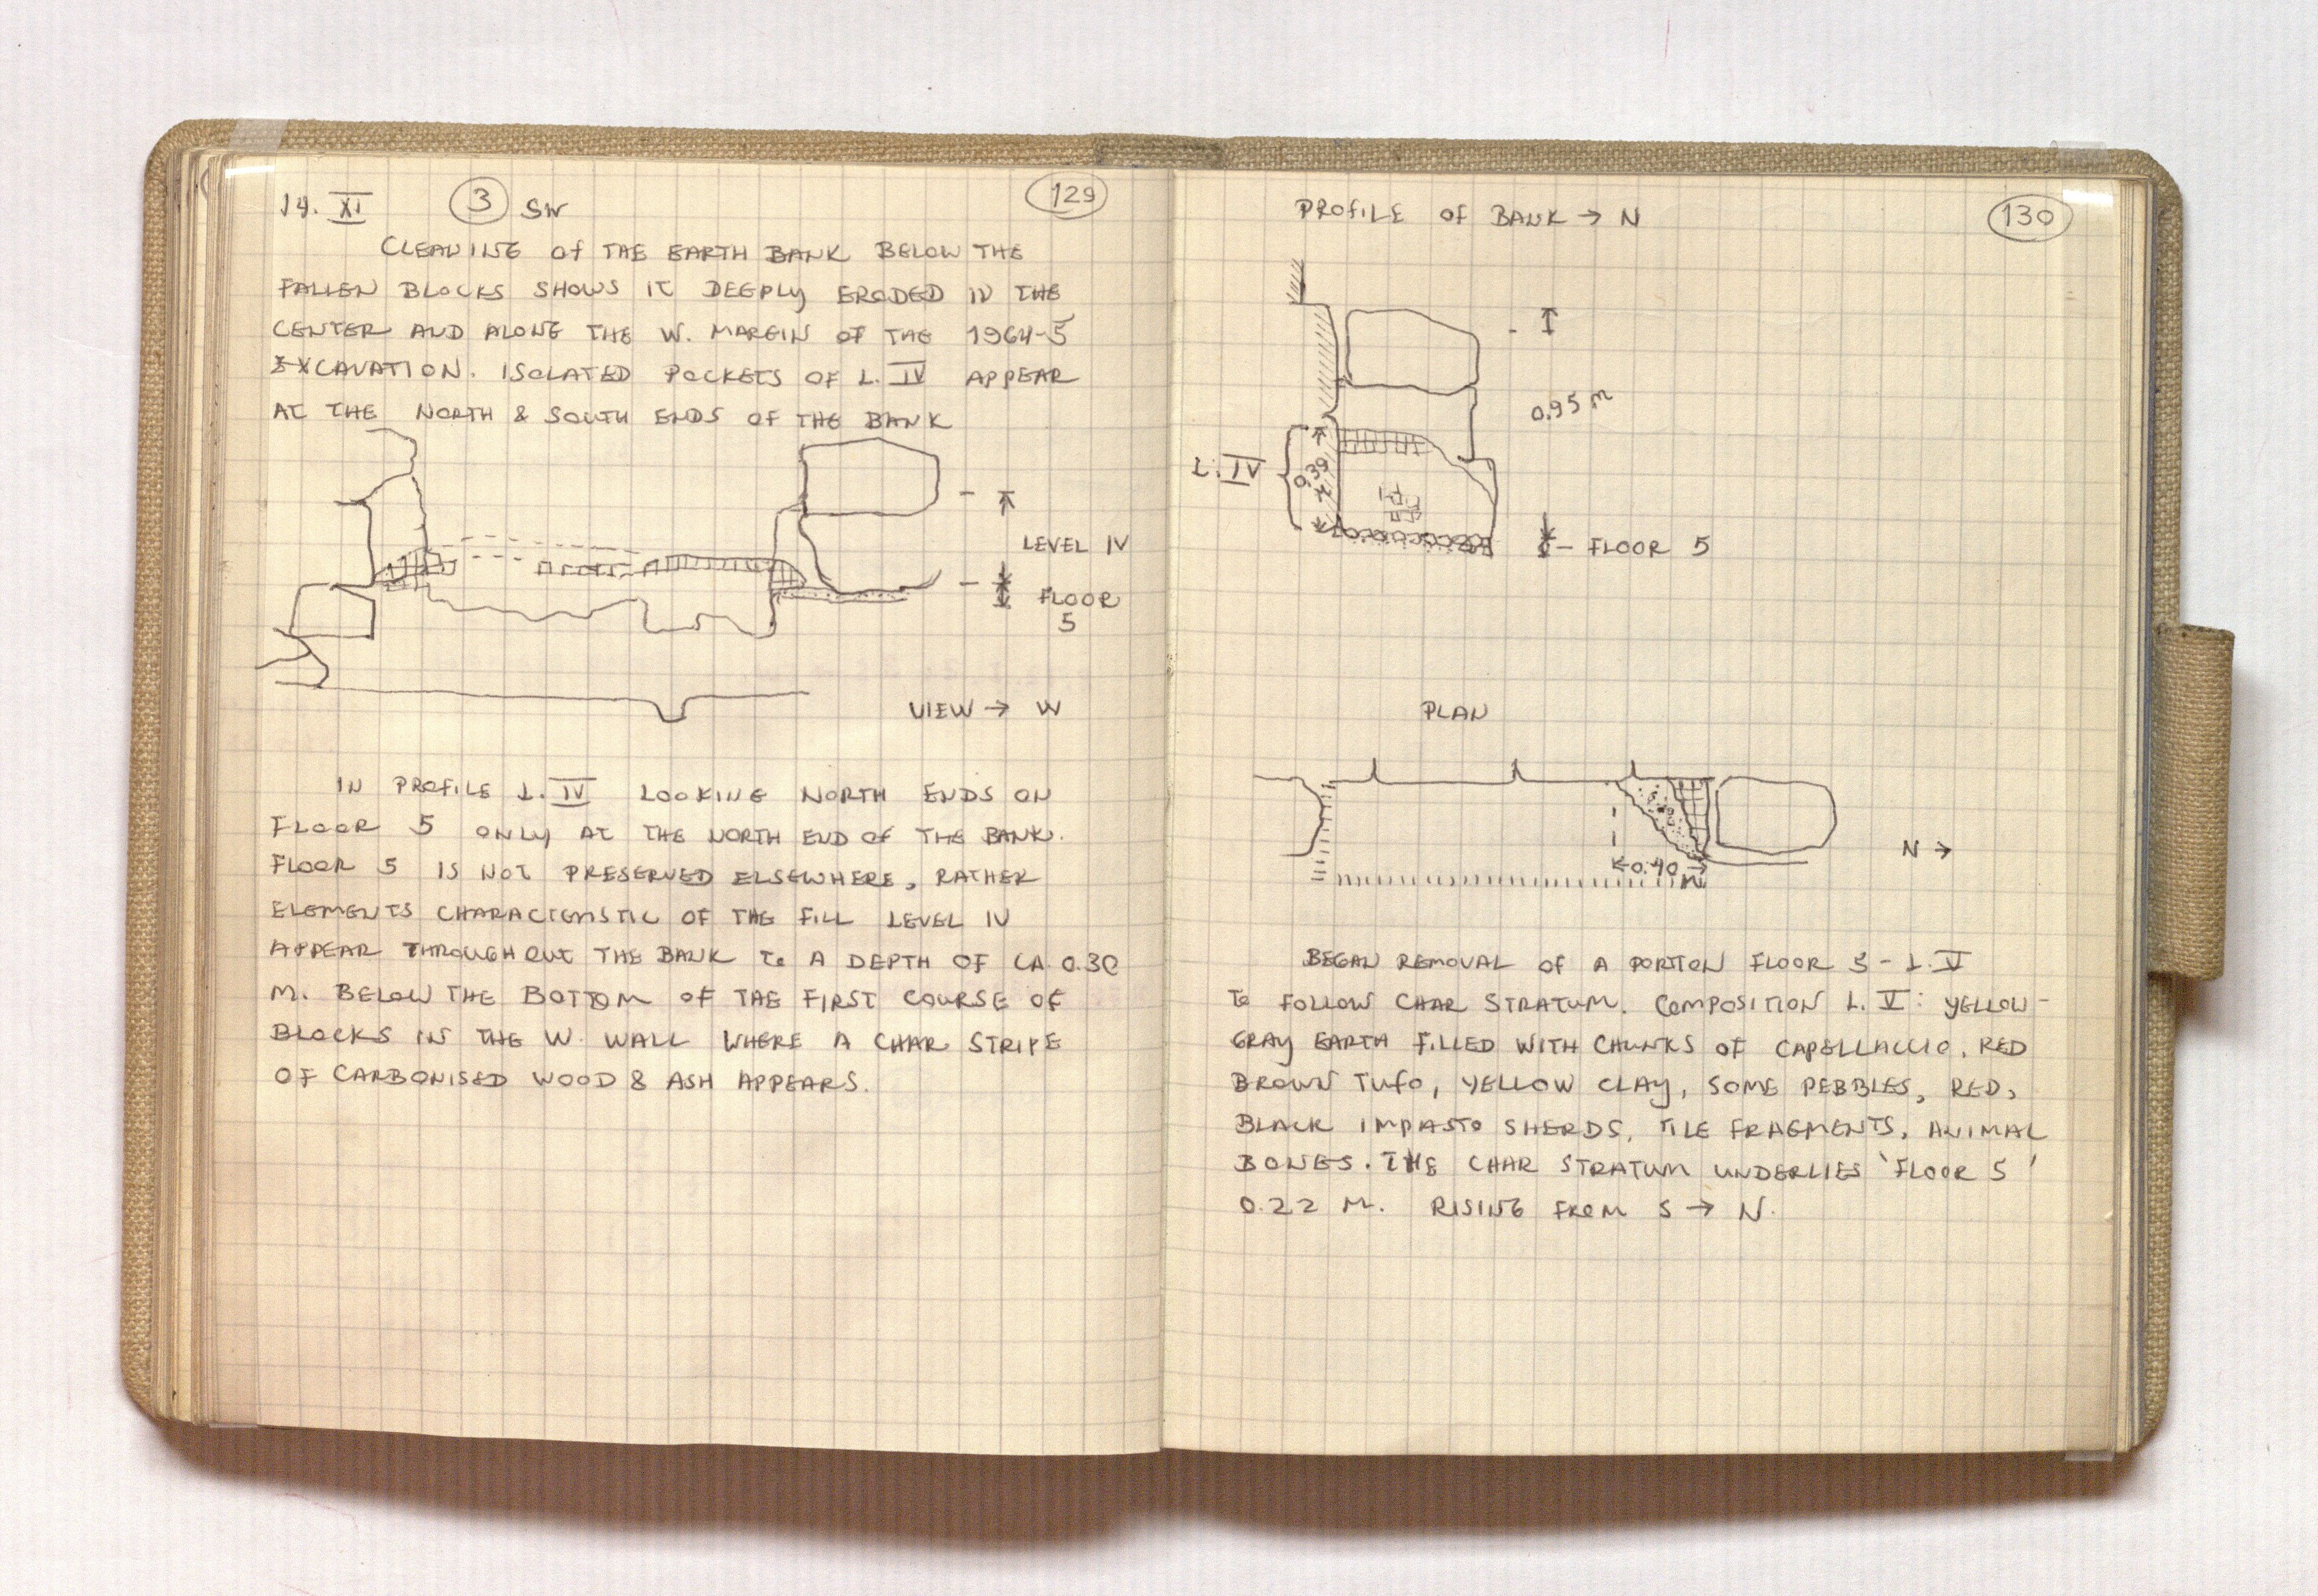 14. XI 3 SW 129
CLEANING OF THE EARTH BANK BELOW THE
FALLEN BLOCKS SHOWS IT DEEPLY ERODED IN THE
CENTER AND ALONG THE W. MARGIN OF THE 1964-5
EXCAVATION. ISOLATED POCKETS OF L. IV APPEAR
AT THE NORTH & SOUTH ENDS OF THE BANK
LEVEL IV
FLOOR
5
VIEW → W
IN PROFILE L. IV LOOKING NORTH ENDS ON
FLOOR 5 ONLY AT THE NORTH END OF THE BANK.
FLOOR 5 IS NOT PRESERVED ELSEWHERE, RATHER
ELEMENTS CHARACTERISTIC OF THE FILL LEVEL IV
APPEAR THROUGHOUT THE BANK TO A DEPTH OF CA. 0.30
M. BELOW THE BOTTOM OF THE FIRST COURSE OF
BLOCKS IN THE W. WALL WHERE A CHAR STRIPE
OF CARBONISED WOOD & ASH APPEARS.
PROFILE OF BANK → N 130
0.95 m
L. IV
0.30
FLOOR 5
PLAN
N →
0.40
m
BEGAN REMOVAL OF A PORTION FLOOR 5 - L. V
TO FOLLOW CHAR STRATUM. COMPOSITION L. V: YELLOW-
GRAY EARTH FILLED WITH CHUNKS OF CAPELLACCIO, RED
BROWN TUFO, YELLOW CLAY, SOME PEBBLES, RED,
BLACK IMPASTO SHERDS, TILE FRAGMENTS, ANIMAL
BONES. THE CHAR STRATUM UNDERLIES 'FLOOR 5'
0.22 M. RISING FROM S → N.